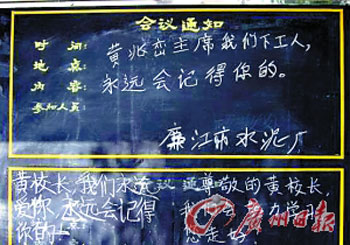 会议通知
时间：
地点：
内容：
参加人员：
黄兆峦主席我们下工人，
永远会记得你的。
廉江市水泥厂
黄校长，我们永远
爱你，永远会记得
你的！
议通
尊敬的黄校长，
我们会努力学习
您走好
广州日报